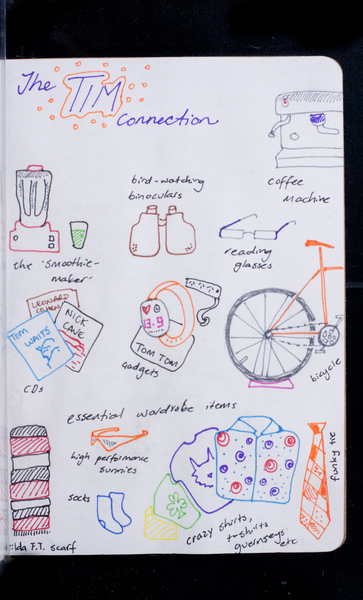 The TIM
connection
bird-watching
binoculars
coffee
machine
reading
glasses
the 'smoothie-
maker'
LEONARD
COHEN
TOM
WAITS
NICK
CAVE
13.9
TOM TOM
gadgets
CDs
bicycle
essential wardrobe items
high performance
sunnies
socks
funky tie
crazy shirts,
t-shirts
guernseys
etc
ilda F.T. scarf